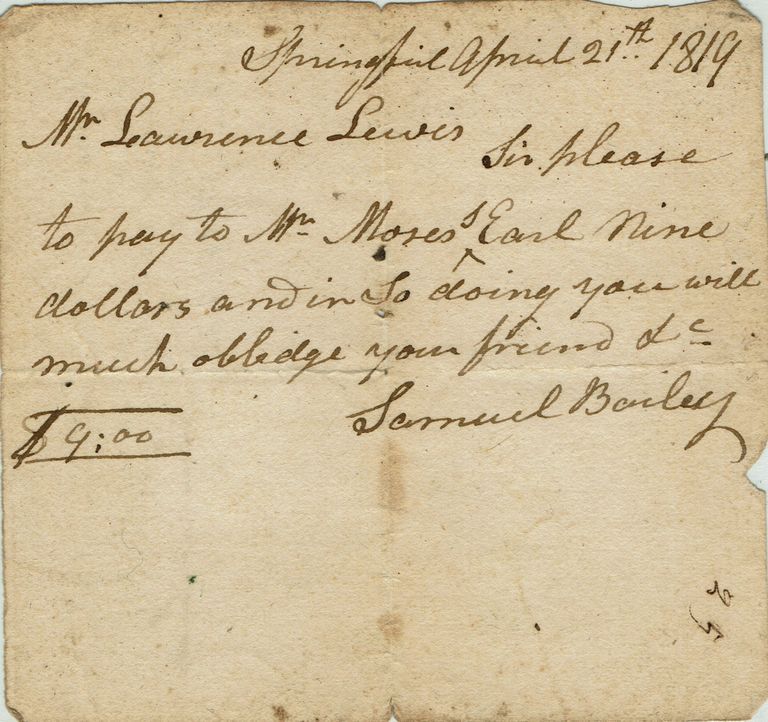 Springfiel April 21th 1819
Mr. Lawrence Lewis Sir please
to pay to Mr Moses^s Earl Nine
dollars and in So doing you will
much oblidge your friend &c
$9:00 Samuel Bailey